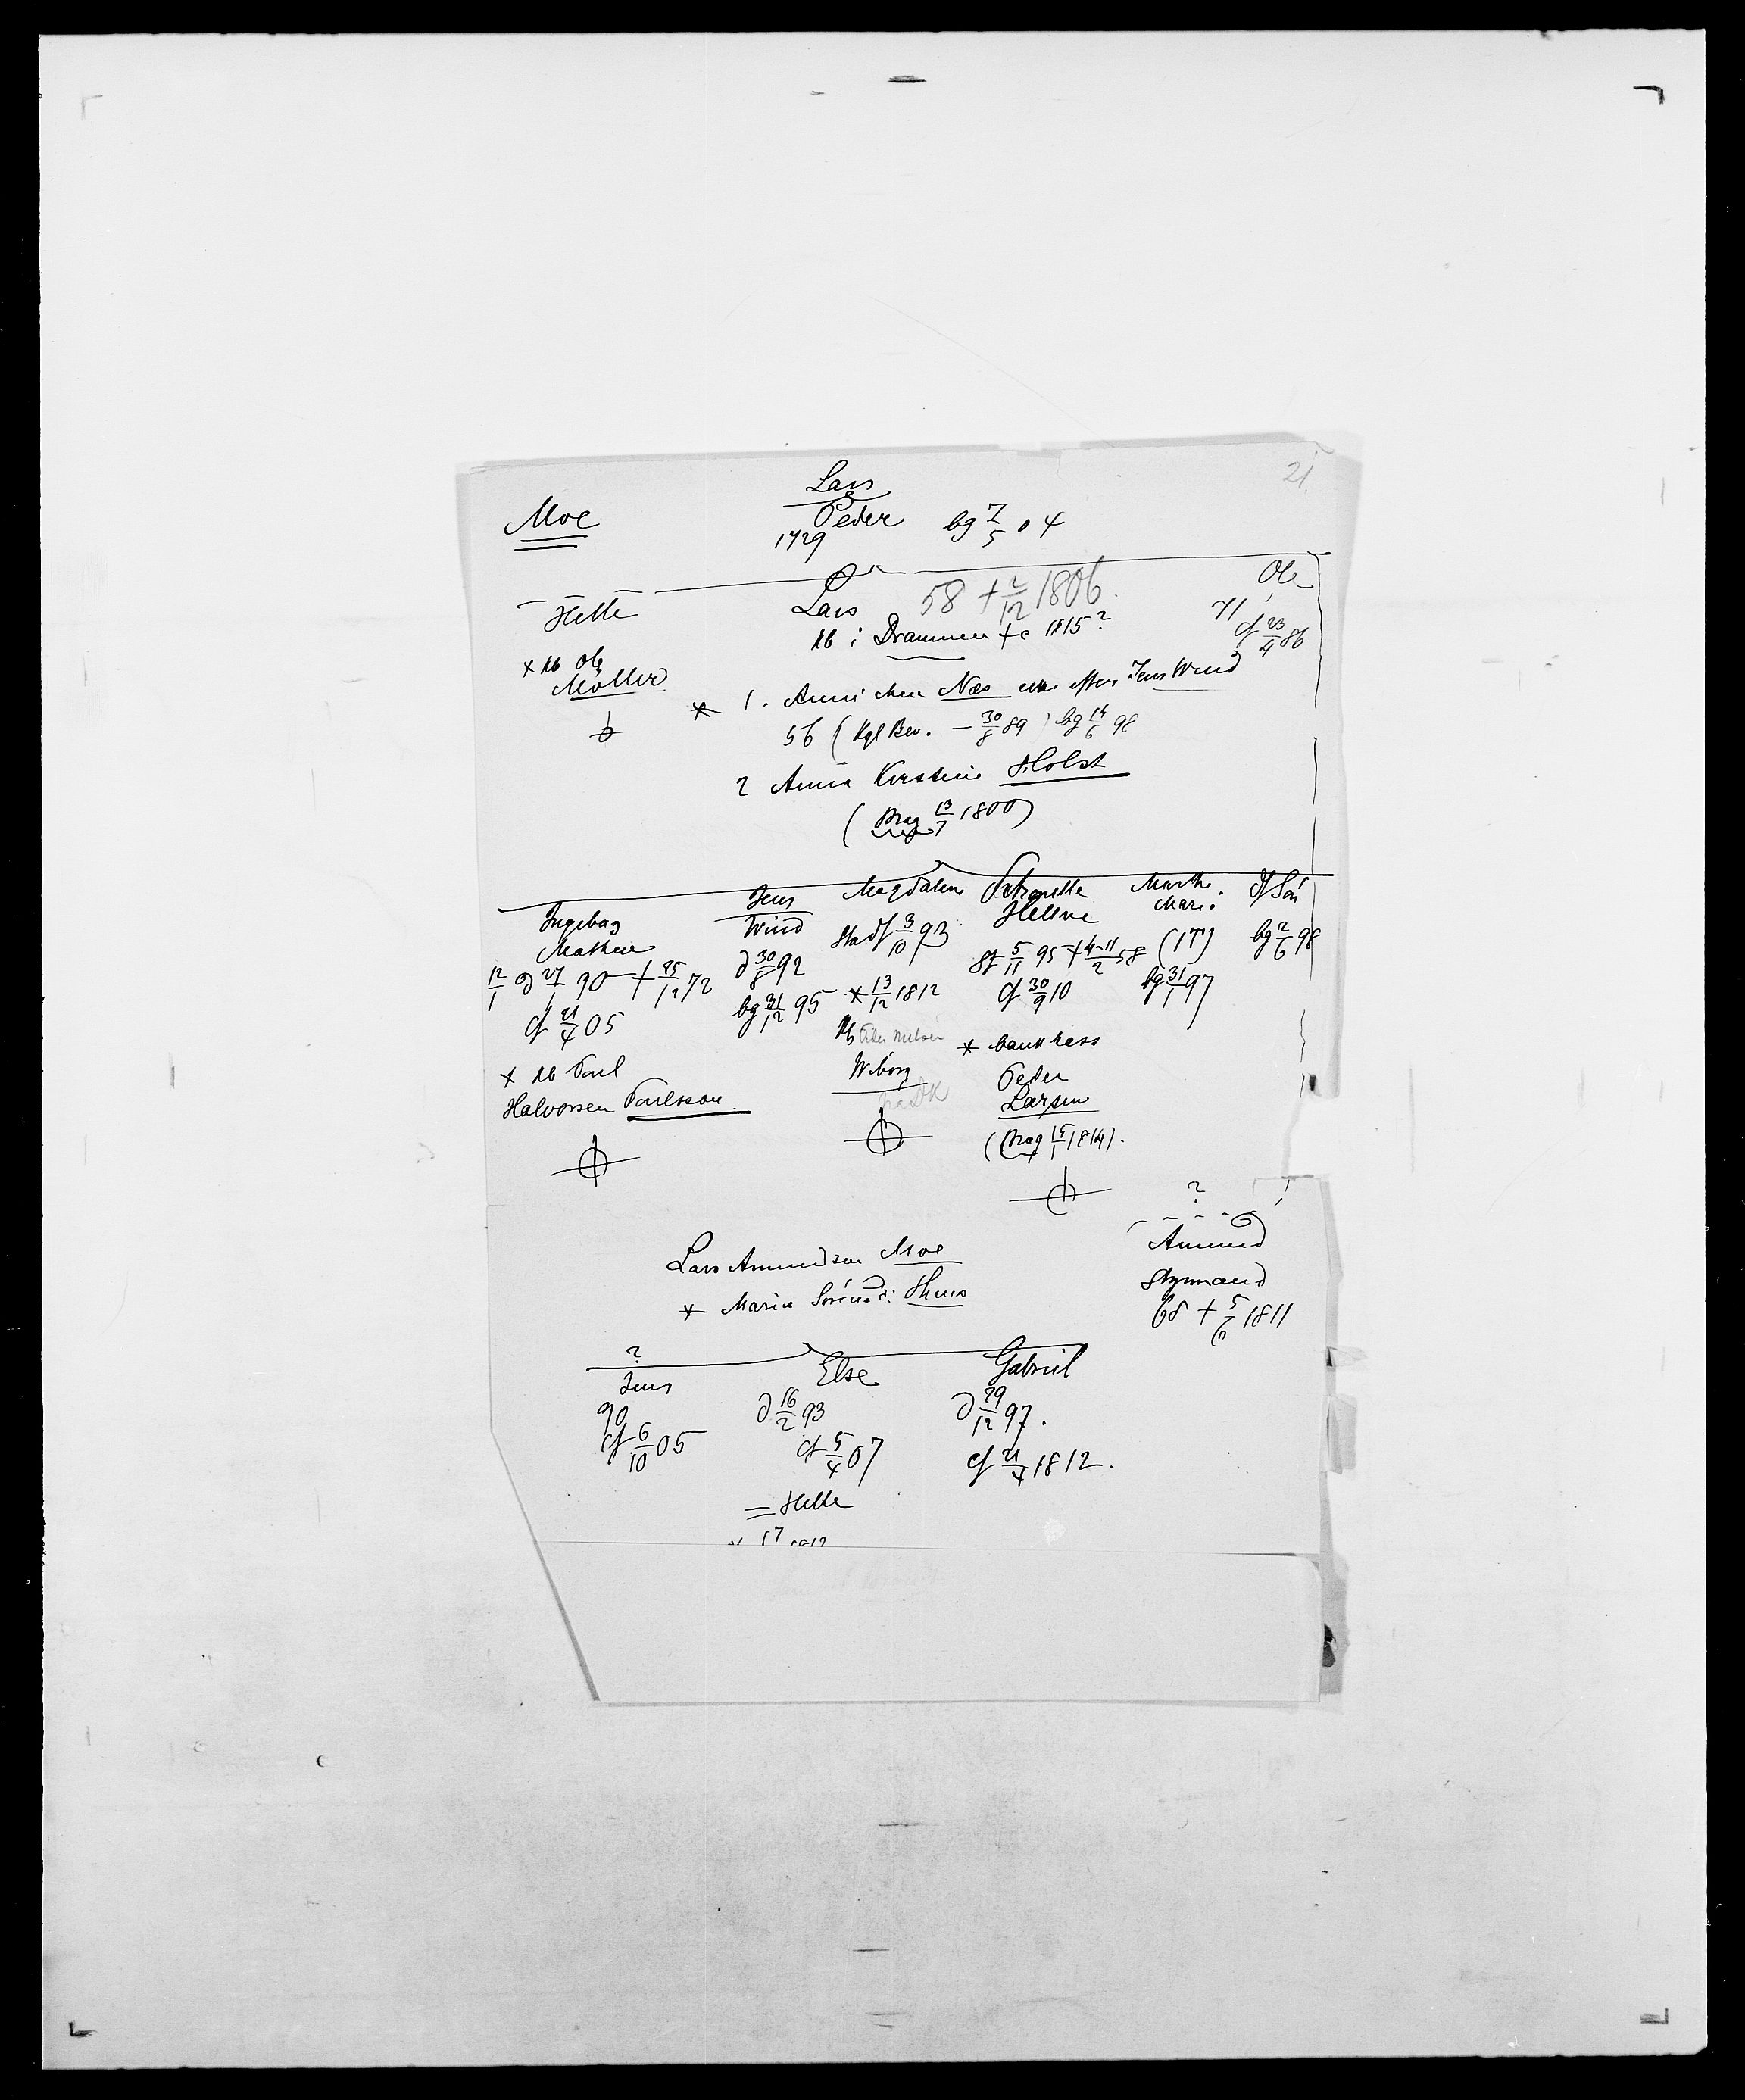 21
Lars
Moe
Peder bg 7/5 04
1729
Helle
Lars 58 + 2/12 1806
Ole
kb i Drammen + c 1815?
71
cf 23/4 86
x kb Ole
Møller
* 1. Annichen Næs enke efter Jens Wind
56 (Kgl Bev. — 30/8 89) bg 14/6 98
2 Anna Kirstine Holst
(Brag 13/7 1800)
Ingebog
Mathea
12/1 d 27/1 90 + 25/12 72
cf 21/4 05
x kb Poul
Halvorsen Poulsson
Jens
Wind
d 30/8 92
bg 31/12 95
Magdalene
3/10 93
* 13/12 1812
kb Peder Nielsen
Wiborg
Petronelle
Hellene
5/11 95 + 4-11/2 58
cf 30/9 10
* bankkass
Peder
Larsen
(Brag 15/1 1814).
Marthe
Marie
(1T)
bg 31/1 97
df Søn
bg 2/6 98
?
Amund
Styrmand
68 + 5/6 1811
Lars Amundsen Moe
* Maria Sørensd: Thues
?
Jens
90
cf 6/10 05
Else
d 16/2 93
cf 5/4 07
= Helle
Gabriel
d 29/12 97.
cf 21/4 1812.